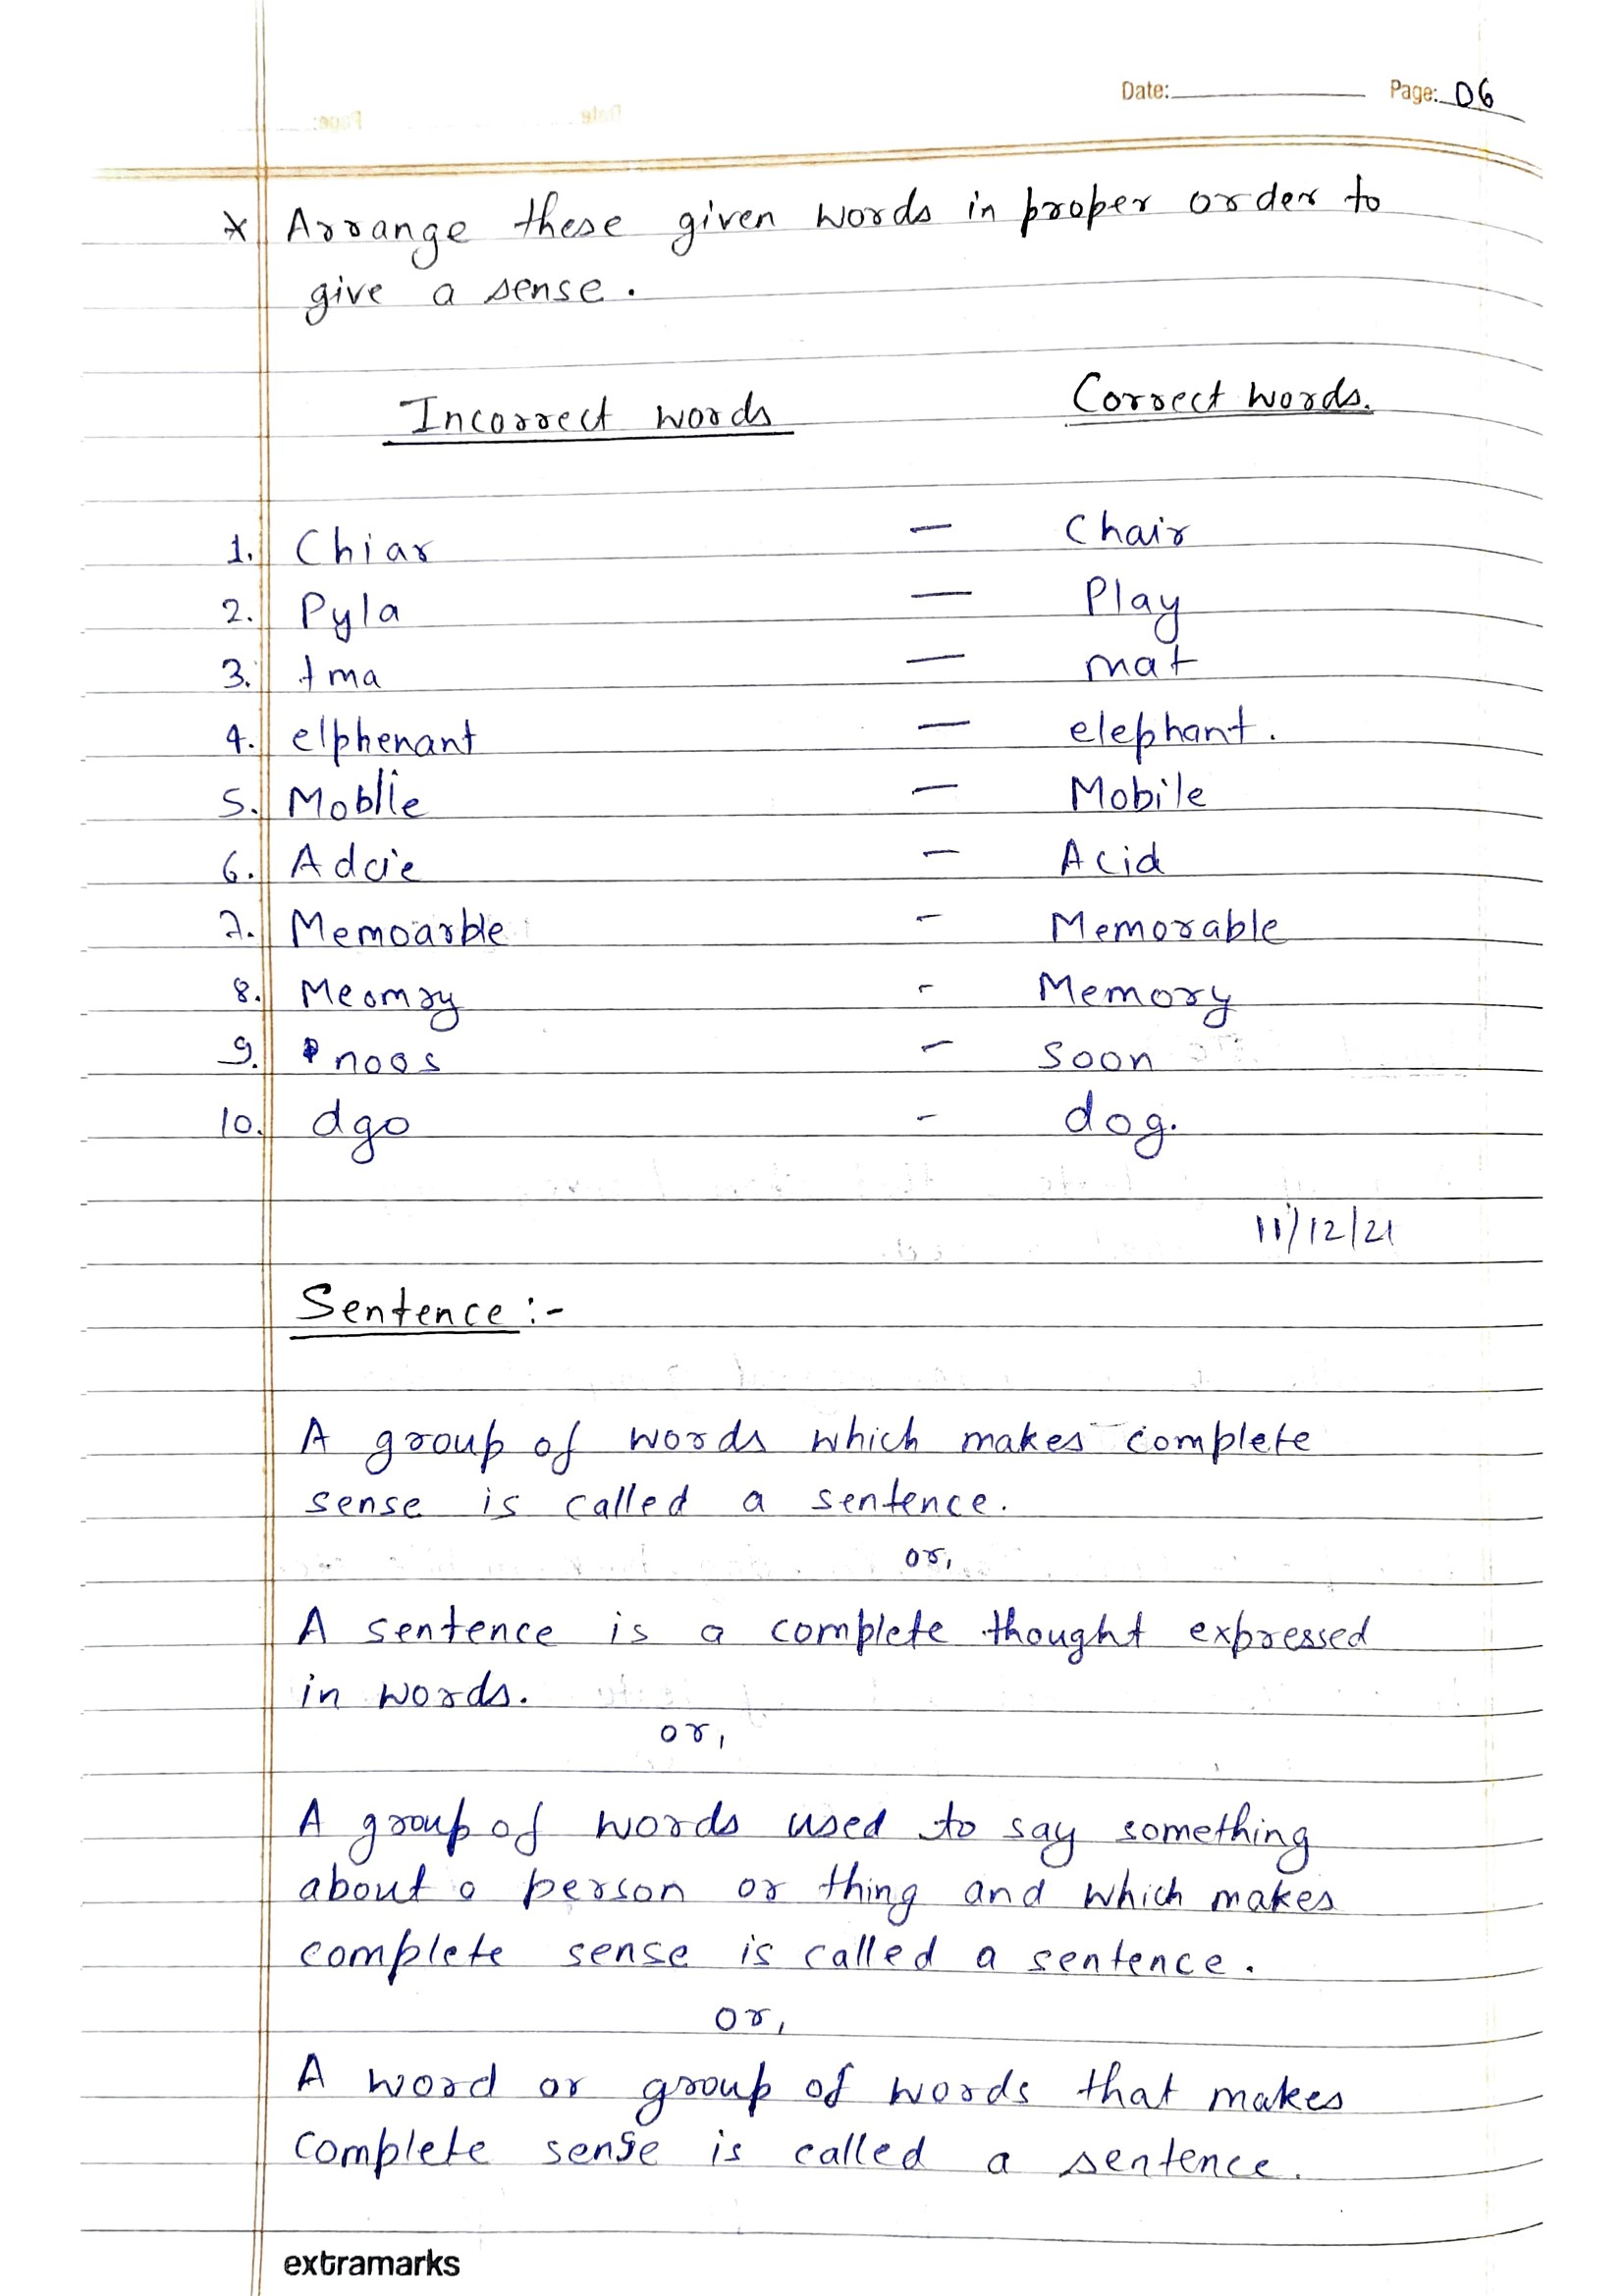 Date: Page: 06
* Arrange these given words in proper order to
give a sense.
Incorrect words Correct words.
1. Chiar - Chair
2. Pyla - Play
3. tma - mat
4. elphenant - elephant.
5. Moblie - Mobile
6. Adcie - Acid
7. Memoarble - Memorable
8. Meomry - Memory
9. noos - soon
10. dgo - dog.
11/12/21
Sentence :-
A group of words which makes complete
sense is called a sentence.
or,
A sentence is a complete thought expressed
in words.
or,
A group of words used to say something
about a person or thing and which makes
complete sense is called a sentence.
or,
A word or group of words that makes
complete sense is called a sentence.
extramarks